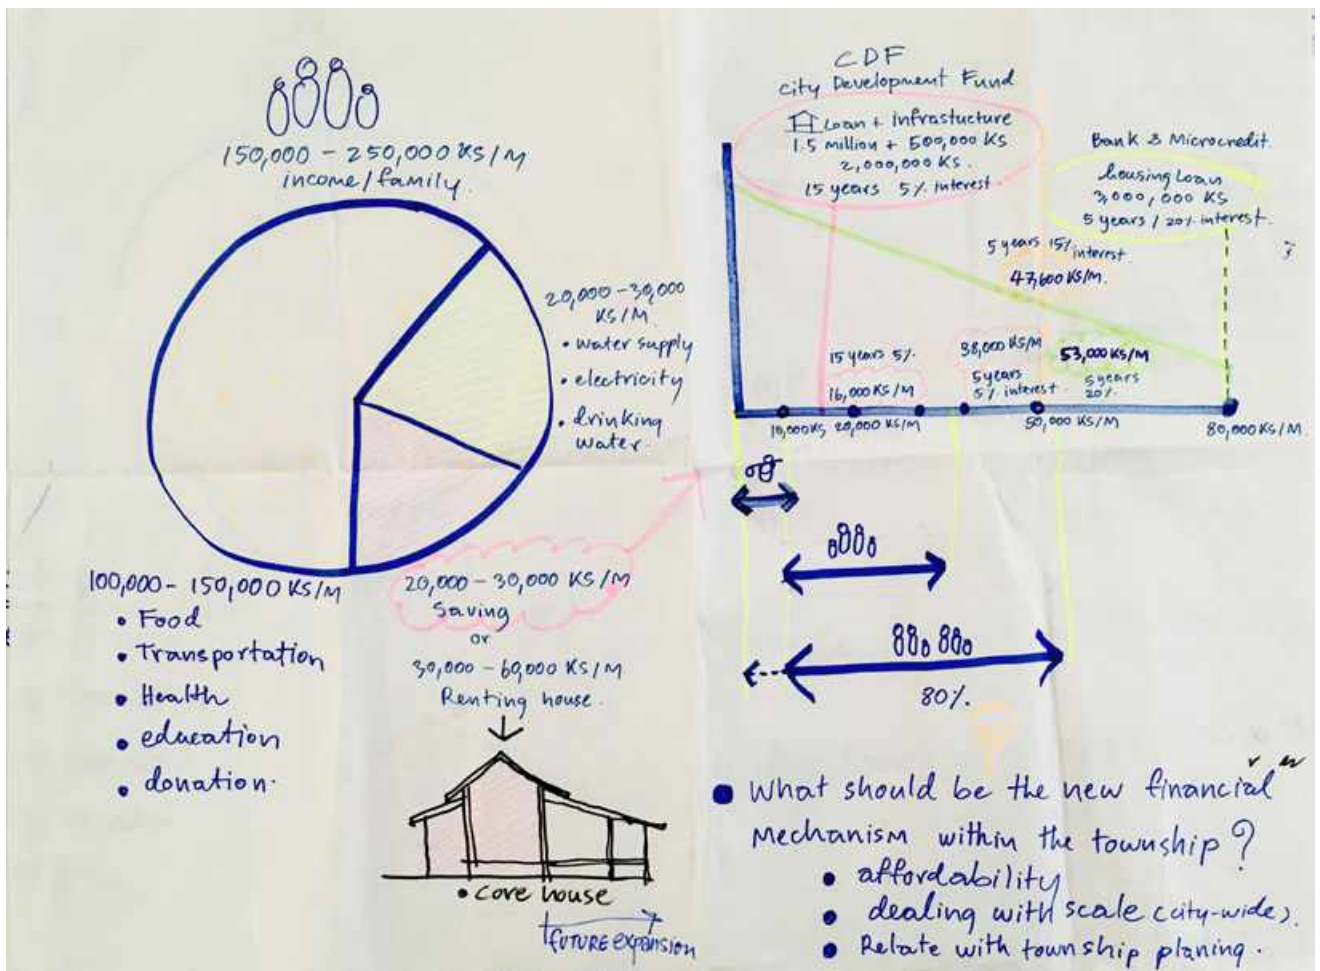 150,000 - 250,000 KS/M
income/family.
20,000 - 30,000
KS/M.
• water supply
• electricity
• drinking
water.
100,000 - 150,000 KS/M
• Food
• Transportation
• Health
• education
• donation.
20,000 - 30,000 KS/M
Saving
or
30,000 - 60,000 KS/M
Renting house.
• core house
FUTURE expansion
CDF
City Development Fund
Loan + Infrastucture
1.5 million + 500,000 KS
2,000,000 KS.
15 years 5% interest
Bank & Microcredit.
housing Loan
3,000,000 KS
5 years / 20% interest.
5 years 15% interest.
47,600 KS/M.
15 years 5%.
16,000 KS/M
38,000 KS/M
5 years
5% interest.
53,000 KS/M
5 years
20%.
10,000 KS 20,000 KS/M 50,000 KS/M 80,000 KS/M.
80%.
• What should be the new financial
Mechanism within the township?
• affordability
• dealing with scale (city-wide).
• Relate with township planing.